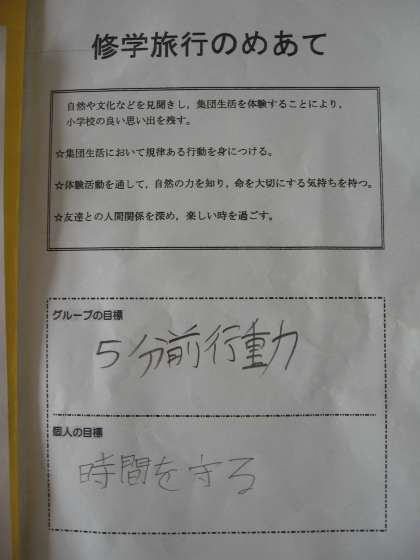 修学旅行のめあて
自然や文化などを見聞きし，集団生活を体験することにより，
小学校の良い思い出を残す。
☆集団生活において規律ある行動を身につける。
☆体験活動を通して，自然の力を知り，命を大切にする気持ちを持つ。
☆友達との人間関係を深め，楽しい時を過ごす。
グループの目標
5分前行動
個人の目標
時間を守る